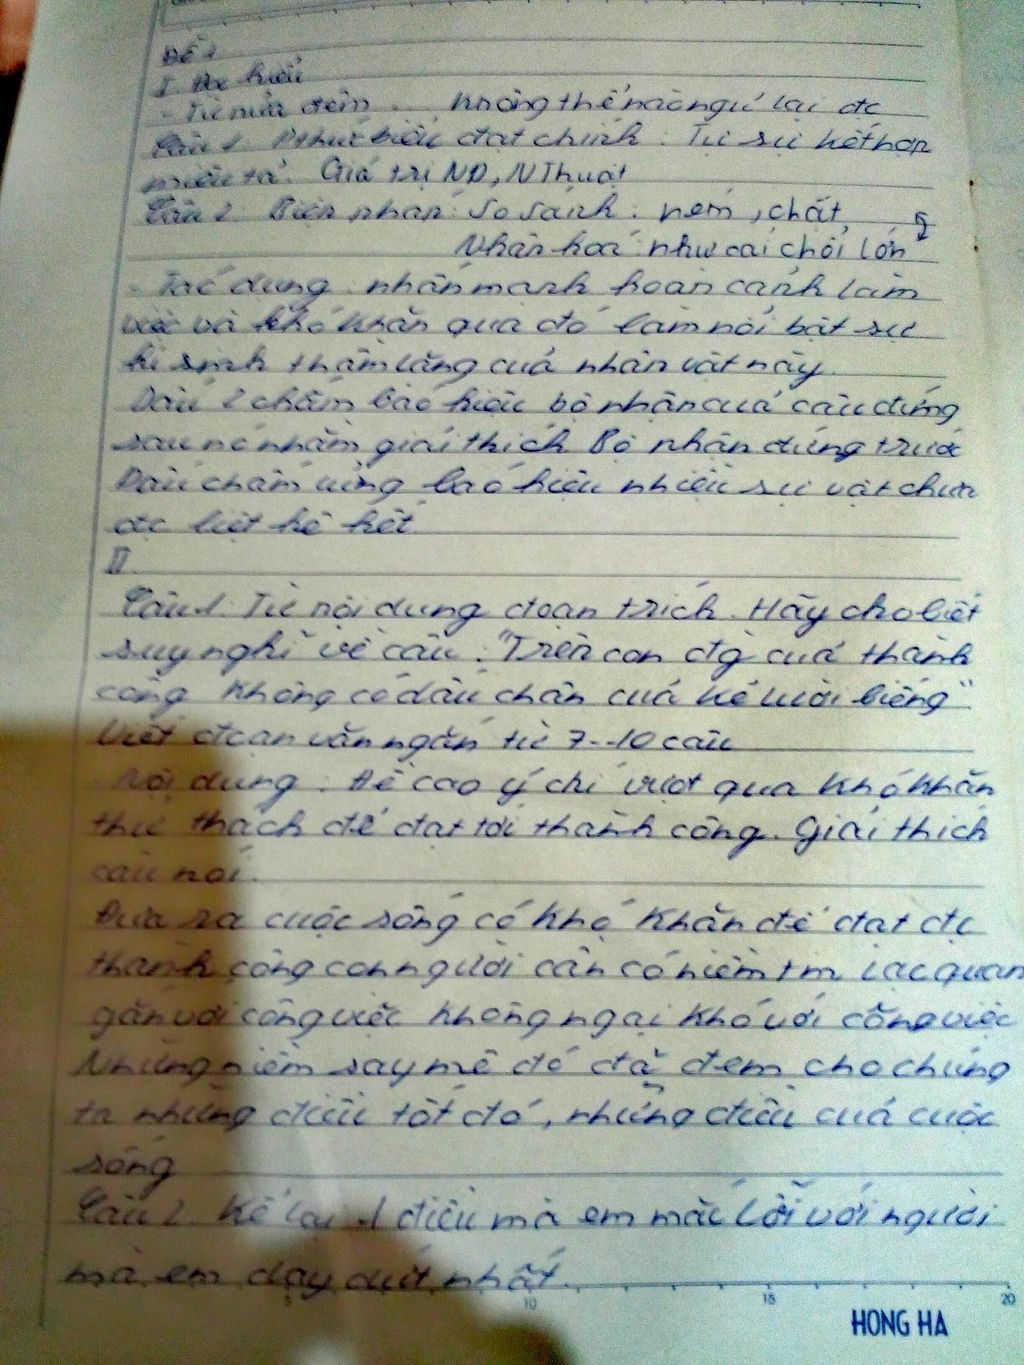 Đề 1
I Đọc hiểu
- Từ nửa đêm ... không thể nào ngủ lại đc
Câu 1. Pthức biểu đạt chính: Tự sự kết hợp
miêu tả. Giá trị ND, NThuật
Câu 2. Biện pháp: So sánh: ném, chặt
Nhân hoá: như cái chổi lớn
- Tác dụng: nhấn mạnh hoàn cảnh làm
việc và khó khăn qua đó làm nổi bật sự
hi sinh thầm lặng của nhân vật này.
Dấu 2 chấm báo hiệu bộ phận của câu đứng
sau nó nhằm giải thích Bộ phận đứng trước
Dấu chấm lửng báo hiệu nhiều sự vật chưa
đc liệt kê hết
II
Câu 1: Từ nội dung đoạn trích. Hãy cho biết
suy nghĩ về câu: "Trên con đg của thành
công không có dấu chân của kẻ lười biếng"
Viết đoạn văn ngắn từ 7--10 câu
- Nội dung: Đề cao ý chí vượt qua khó khăn
thử thách để đạt tới thành công. Giải thích
câu nói.
Đưa ra cuộc sống có khó khăn để đạt đc
thành công con người cần có niềm tin lạc quan
gắn với công việc không ngại khó với công việc
Những niềm say mê đó đã đem cho chúng
ta những điều tốt đó, những điều của cuộc
sống
Câu 2. Kể lại 1 điều mà em mắc lỗi với người
mà em day dứt nhất.
10 15 20
HONG HA